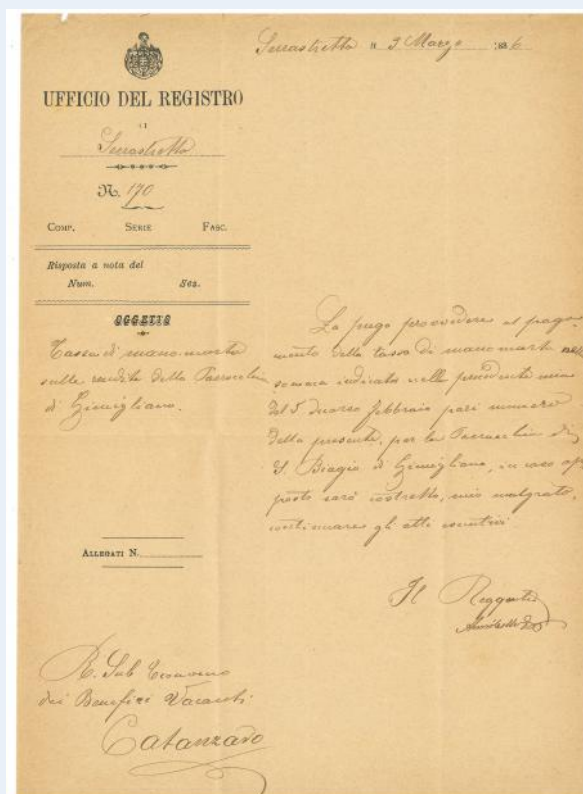 Serrastretta li 3 Marzo 1886
UFFICIO DEL REGISTRO
DI
Serrastretta
N. 170
COMP. SERIE FASC.
Risposta a nota del
Num. Sez.
OGGETTO
Tassa di mano morta
sulle rendite della Parrocchia
di Gimigliano.
La prego provvedere al paga-
mento della tassa di mano morta nella
somma indicata nella precedente mia
del 5 febbraio pari numero
della presente, per la Parrocchia di
S. Biagio di Gimigliano, in caso op-
posto sarò costretto, mio malgrado,
continuare gli atti esecutivi
ALLEGATI N.
Il Reggente
R. Sub Economo
dei Benefizi Vacanti
Catanzaro